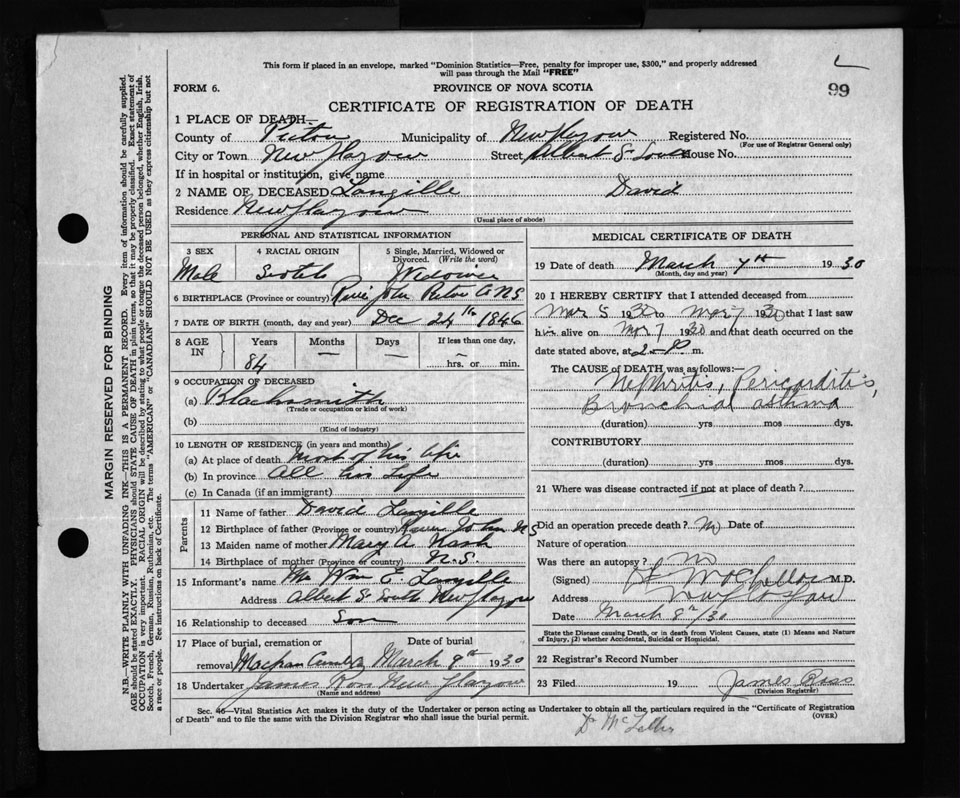 This form if placed in an envelope, marked "Dominion Statistics—Free, penalty for improper use, $300," and properly addressed
will pass through the Mail "FREE"
99
FORM 6.
PROVINCE OF NOVA SCOTIA
CERTIFICATE OF REGISTRATION OF DEATH
1 PLACE OF DEATH—
County of Pictou Municipality of New Glasgow Registered No.
(For use of Registrar General only)
City or Town New Glasgow Street Albert St South House No.
If in hospital or institution, give name
2 NAME OF DECEASED Langille David
Residence New Glasgow
(Usual place of abode)
PERSONAL AND STATISTICAL INFORMATION
3 SEX 4 RACIAL ORIGIN 5 Single, Married, Widowed or
Divorced. (Write the word)
Male Scotch Widower
6 BIRTHPLACE (Province or country) River John Pictou Co NS
7 DATE OF BIRTH (month, day and year) Dec 24th 1846
8 AGE
IN
Years Months Days If less than one day,
84 — — — hrs. or min.
9 OCCUPATION OF DECEASED
(a) Blacksmith
(Trade or occupation or kind of work)
(b)
(Kind of industry)
10 LENGTH OF RESIDENCE (in years and months)
(a) At place of death Most of his life
(b) In province All his Life
(c) In Canada (if an immigrant)
Parents
11 Name of father David Langille
12 Birthplace of father (Province or country) River John NS
13 Maiden name of mother Mary A Nash
14 Birthplace of mother (Province or country) N.S.
15 Informant's name Mr Wm E. Langille
Address Albert St South New Glasgow
16 Relationship to deceased Son
17 Place of burial, cremation or Date of burial
removal March 9th 1930
18 Undertaker James New Glasgow
(Name and address)
MEDICAL CERTIFICATE OF DEATH
19 Date of death March 7th 1930
(Month, day and year)
20 I HEREBY CERTIFY that I attended deceased from
Mar 5 1930 to Mar 7 1930 that I last saw
him alive on Mar 7 1930 and that death occurred on the
date stated above, at 2 P m.
The CAUSE OF DEATH was as follows:—
Nephritis, Pericarditis,
Bronchial asthma
(duration) yrs mos dys.
CONTRIBUTORY
(duration) yrs. mos. dys.
21 Where was disease contracted if not at place of death?
Did an operation precede death? No Date of
Nature of operation
Was there an autopsy? No
(Signed) M.D.
Address New Glasgow
Date March 8th/30
State the Disease causing Death, or in death from Violent Causes, state (1) Means and
Nature of Injury, (2) whether Accidental, Suicidal or Homicidal.
22 Registrar's Record Number
23 Filed 19 James Ross
(Division Registrar)
Sec. 46—Vital Statistics Act makes it the duty of the Undertaker or person acting as Undertaker to obtain all the particulars required in the "Certificate of Registration
of Death" and to file the same with the Division Registrar who shall issue the burial permit.
(OVER)
MARGIN RESERVED FOR BINDING
N.B.—WRITE PLAINLY WITH UNFADING INK—THIS IS A PERMANENT RECORD. Every item of information should be carefully supplied.
AGE should be stated EXACTLY. PHYSICIANS should STATE CAUSE OF DEATH in plain terms, so that it may be properly classified. Exact statement of
OCCUPATION is very important. RACIAL ORIGIN will be described by stating to what people or tongue the deceased person belonged, whether English, Irish,
Scotch, French, German, Russian, Ruthenian, etc. The terms "AMERICAN" or "CANADIAN" SHOULD NOT BE USED as they express citizenship but not
a race or people. See instructions on back of Certificate.